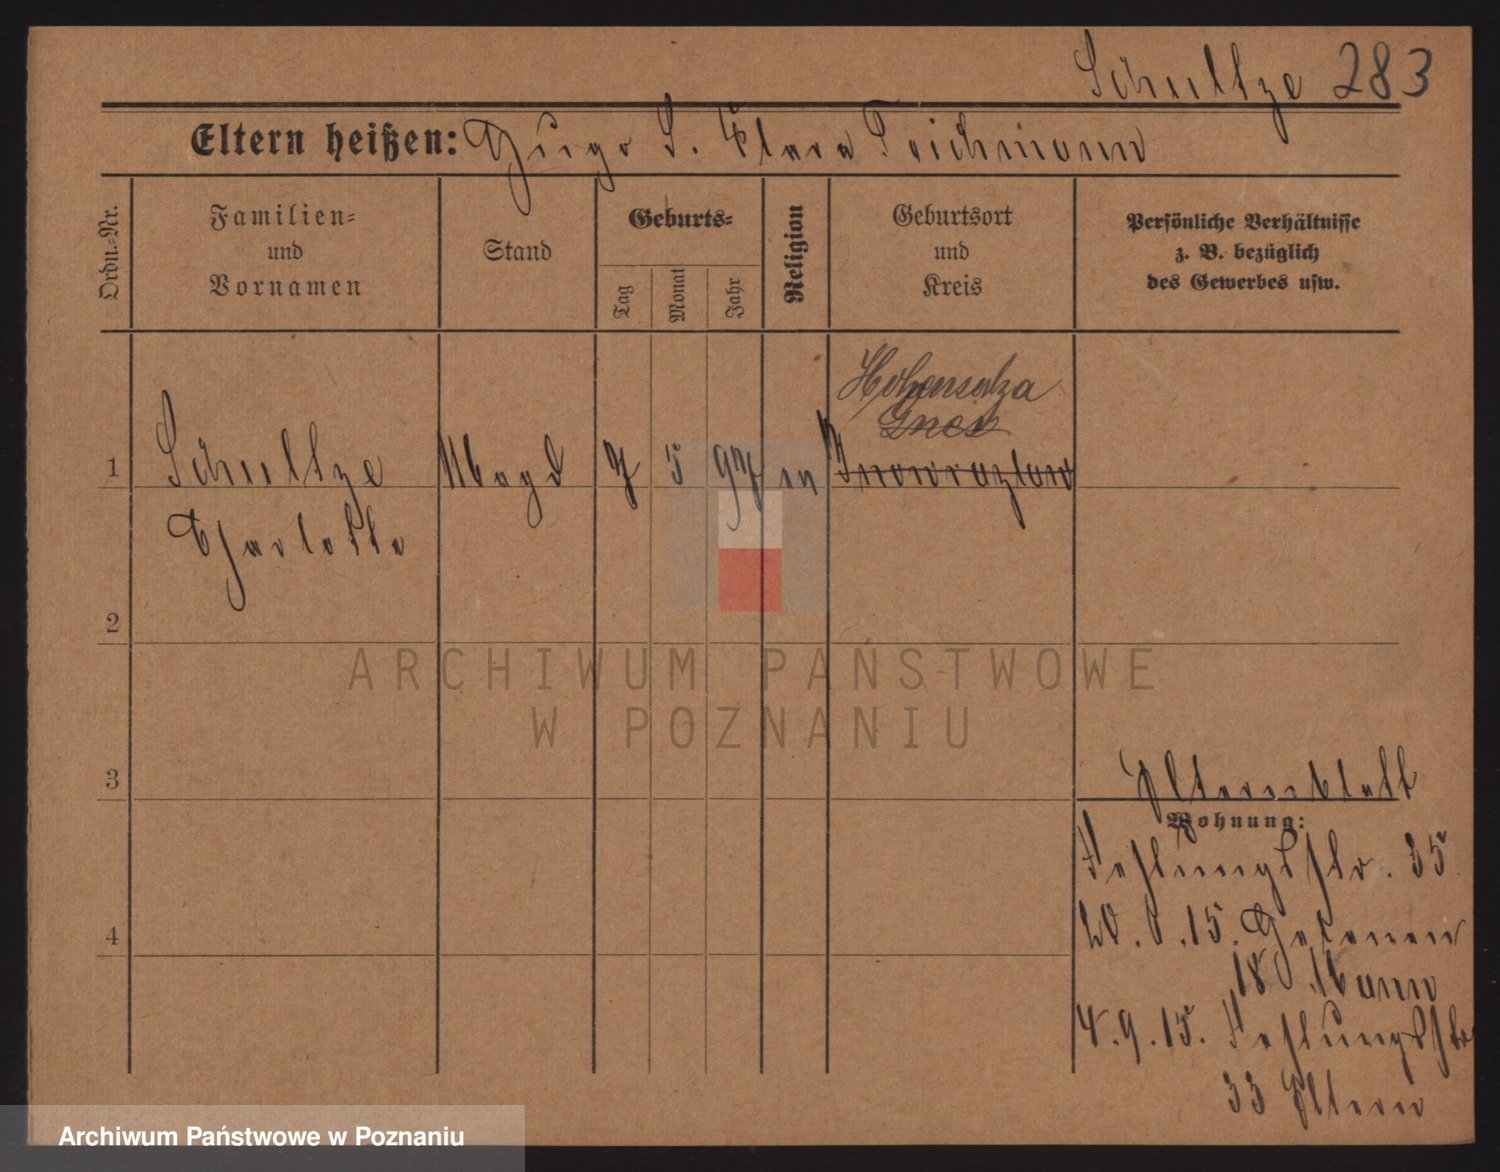 Schultze 283
Eltern heißen: Hugo S. Clara Teichmann
Ordn.-Nr.
Familien-
und
Vornamen
Stand
Geburts-
Tag
Monat
Jahr
Religion
Geburtsort
und
Kreis
Persönliche Verhältnisse
z. B. bezüglich
des Gewerbes usw.
Hohensalza
1 Schultze Magd 7 5 97 ev Inowrazlaw
Charlotte
2
3
4
Elternblatt
Wohnung:
Festungsstr. 35
20. 15.
18
4.9.15. Festungsstr
33 Eltern
ARCHIWUM PAŃSTWOWE
W POZNANIU
Archiwum Państwowe w Poznaniu